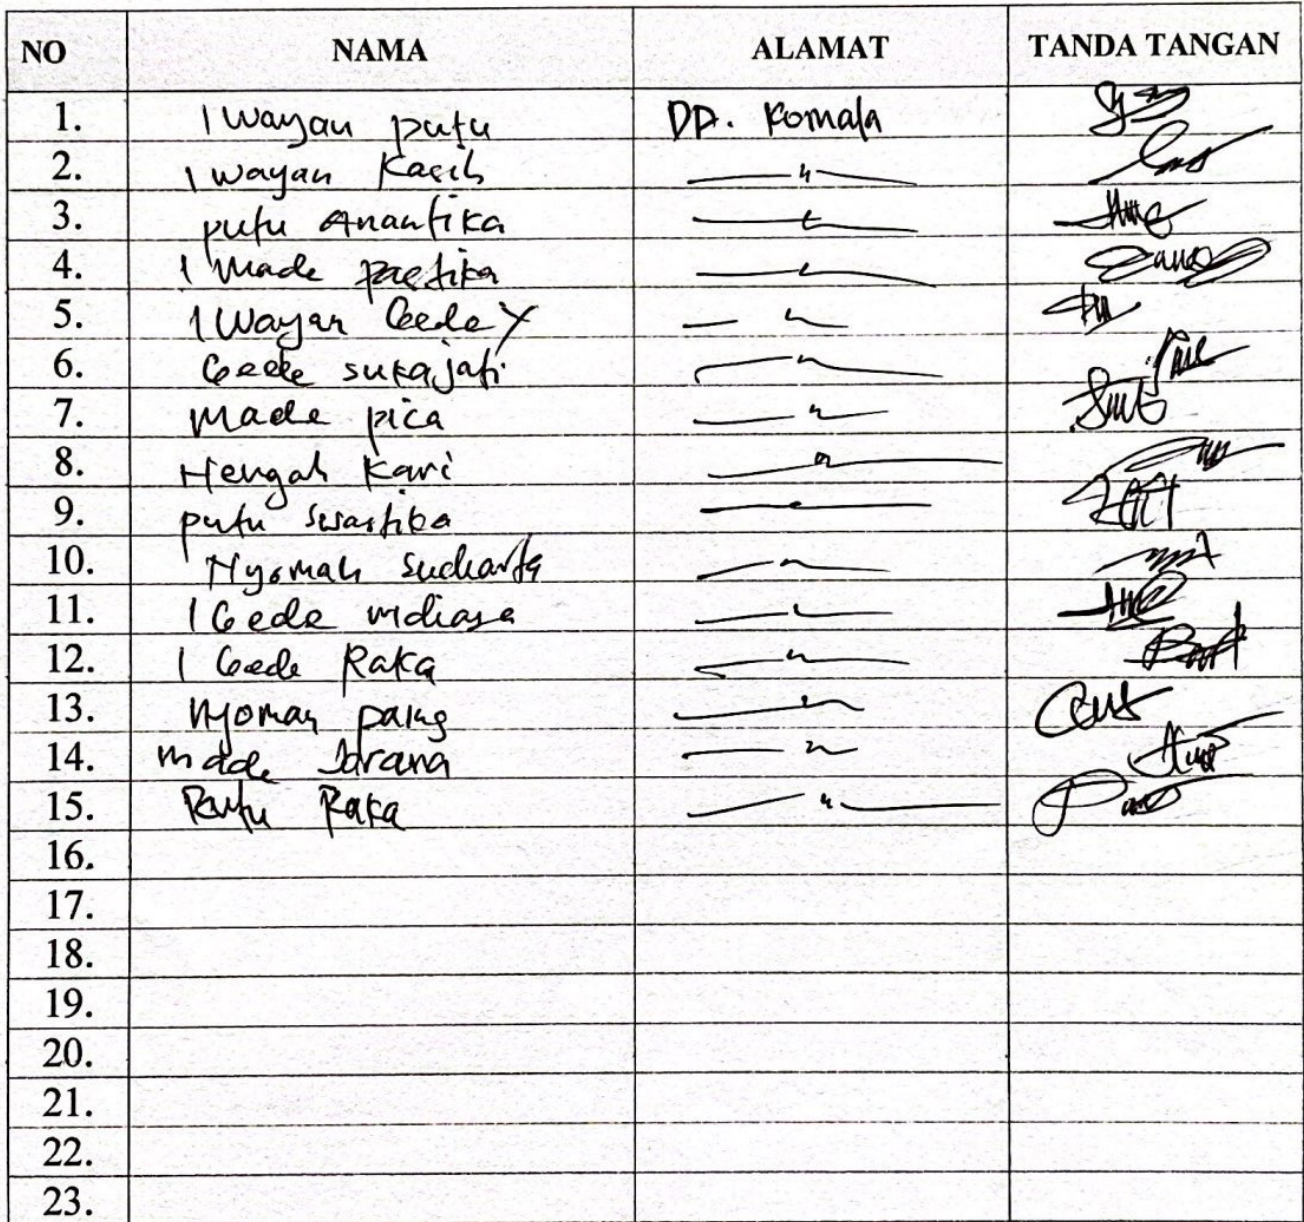 NO NAMA ALAMAT TANDA TANGAN
1. I Wayan putu DD. Komala
2. I wayan Kasih —〃—
3. putu Anantika —〃—
4. I Made pastika —〃—
5. I Wayan Gede Y —〃—
6. Gede sukajati —〃—
7. Made pica —〃—
8. Nengah Kari —〃—
9. putu Swastika —〃—
10. Nyoman Sudiarta —〃—
11. I Gede —〃—
12. I Gede Raka —〃—
13. Nyoman —〃—
14. made —〃—
15. Putu Raka —〃—
16.
17.
18.
19.
20.
21.
22.
23.